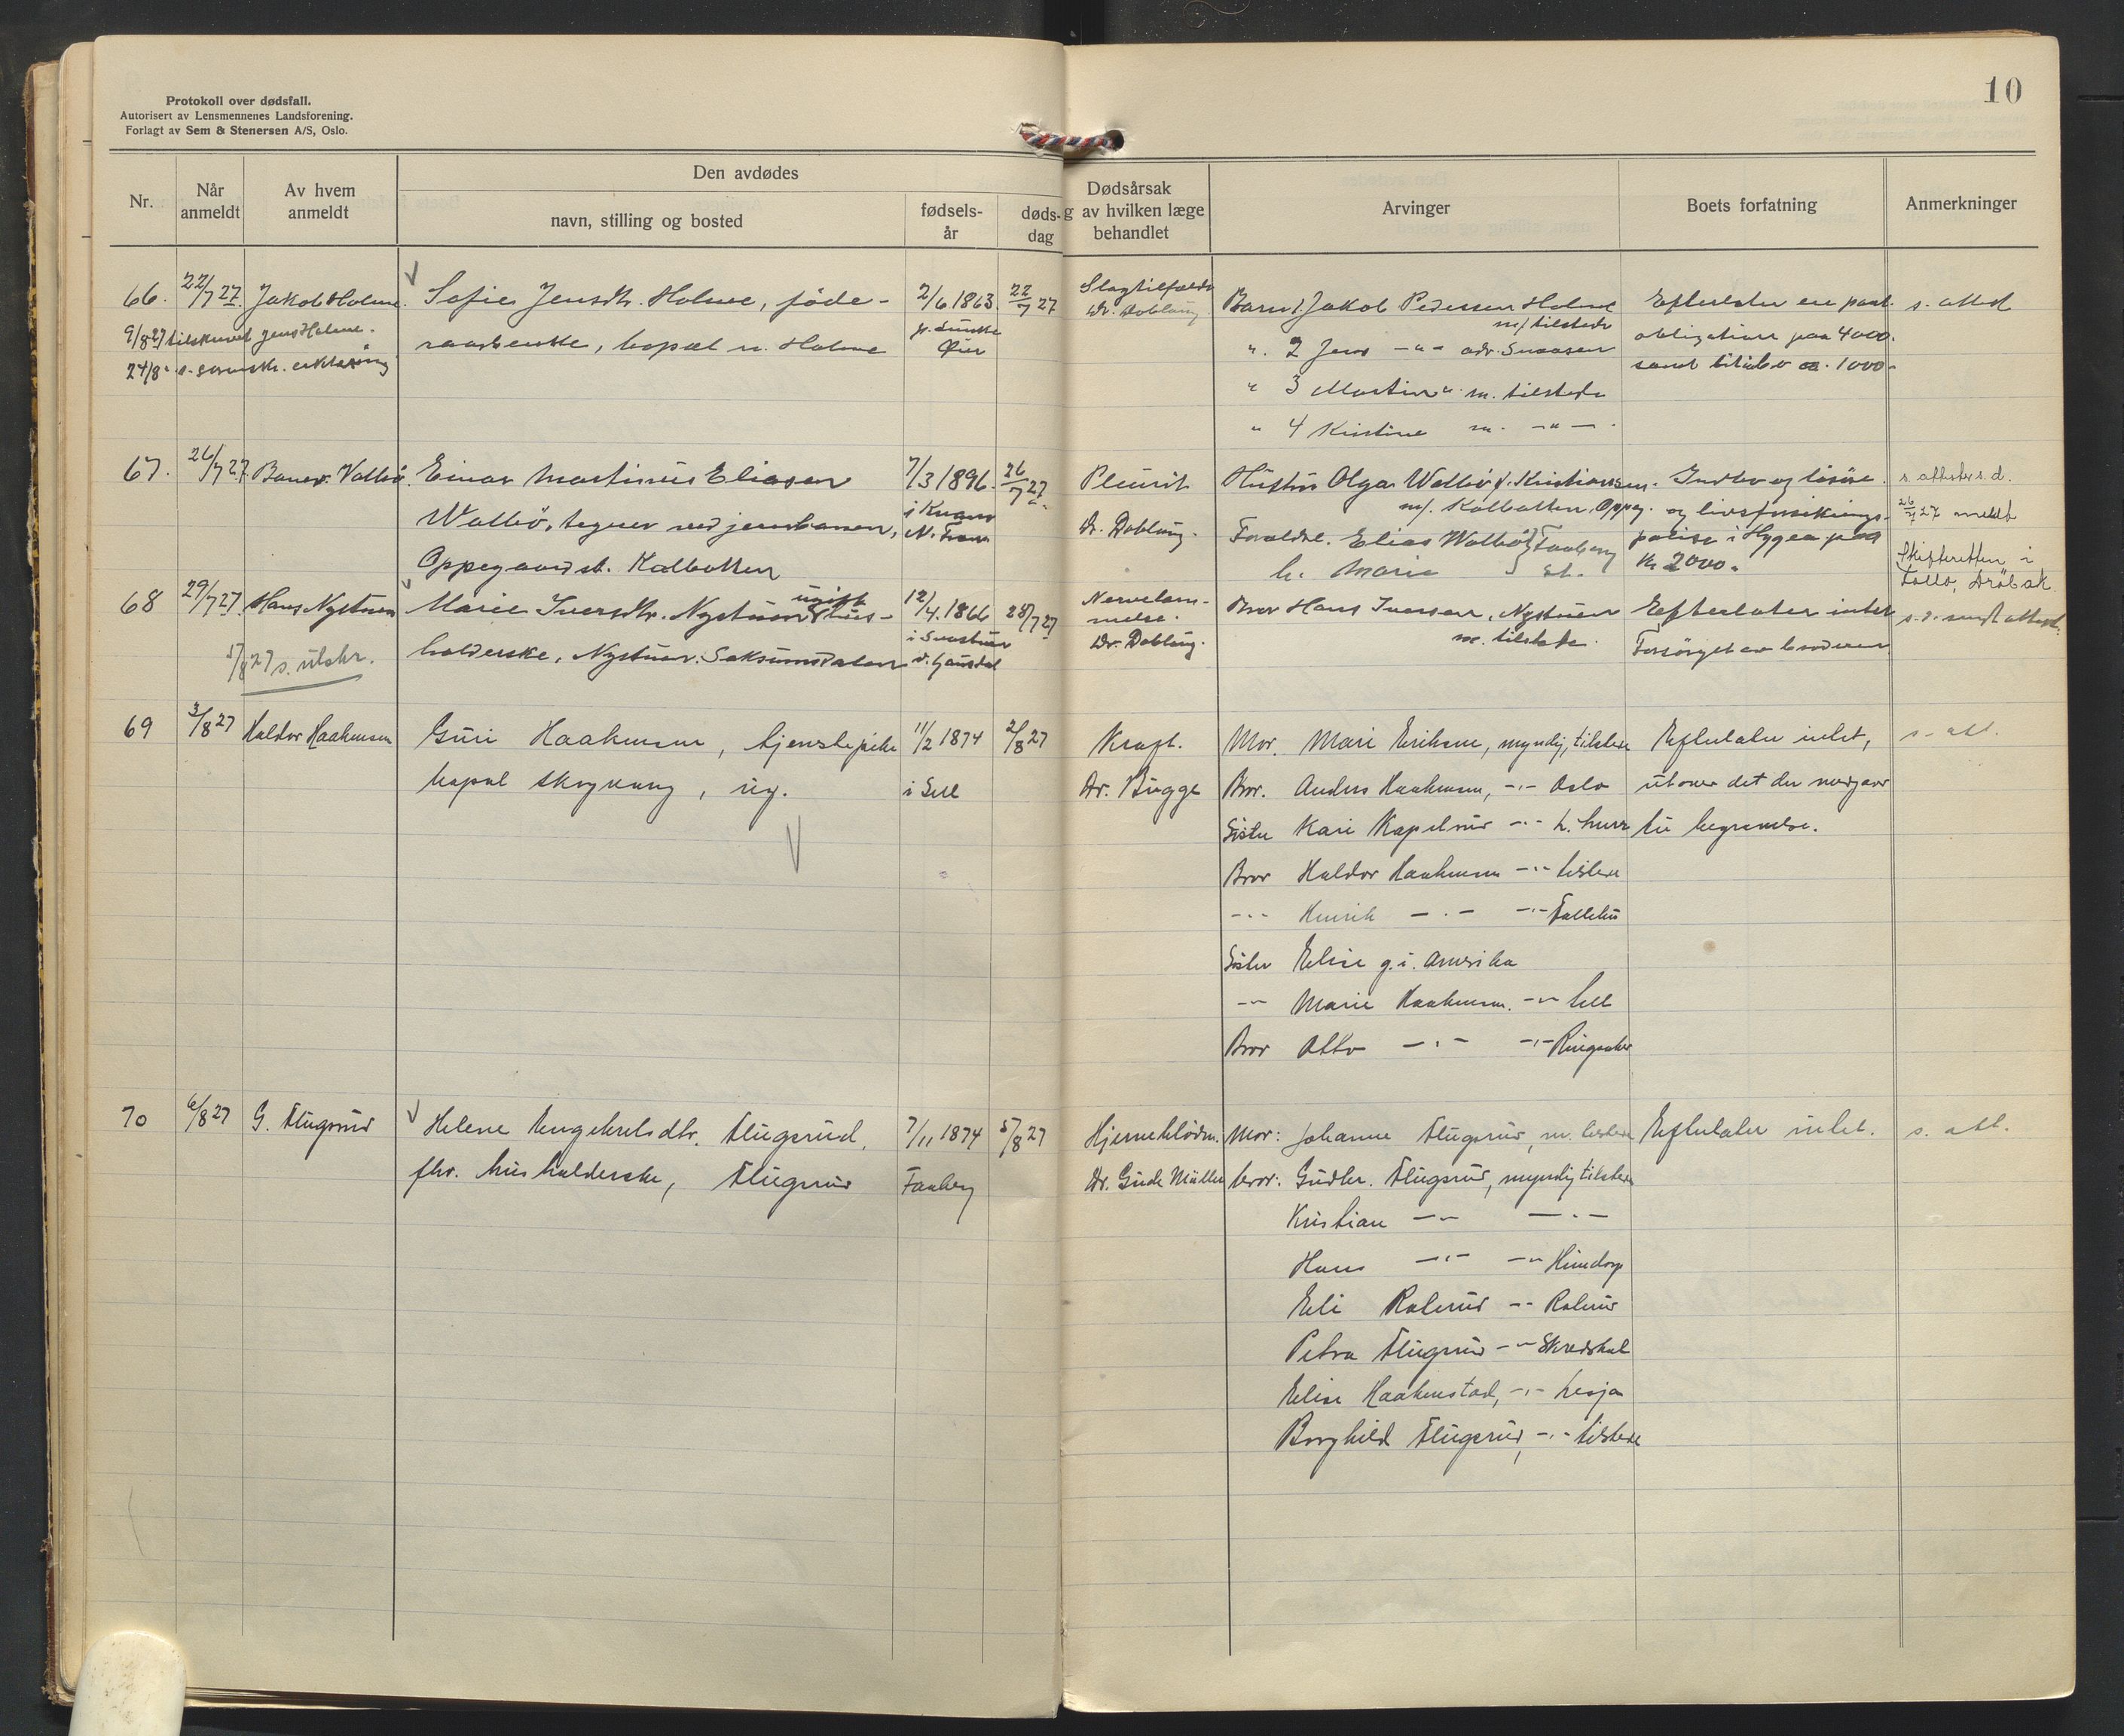 Protokoll over dødsfall.
Autorisert av Lensmennenes Landsforening.
Forlagt av Sem & Stenersen A/S, Oslo.
10
Nr.
Når anmeldt
Av hvem anmeldt
Den avdødes
navn, stilling og bosted
fødsels-år
døds-dag
Dødsårsak
g av hvilken læge
behandlet
Arvinger
Boets forfatning
Anmerkninger
66. 22/7 27. Jakob Holme. Sofie Jensdtr. Holme, føde-
raadsenke, bopæl n. Holme
9/8 27 tilskrevet Jens Holme.
24/8 erklæring
2/6 1863
Øier
22/7 27
Slagtilfælde
Dr. Dobloug
Barn 1. Jakob Pedersen Holme
m/ tilstede
" 2 Jens -"-
" 3 Martin " m. tilstede
" 4 Kristine m. -"-
Efterlater en pant
obligation paa 4000.
samt litibo ca. 1000-
s. attest
67. 26/7 27. Einar Martinius Eliasen
Walbö, tegner ved jernbanen,
Oppegaard st. Kolbotten
7/3 1896.
i Kvam
N. Fron
26/7 27.
Pleurit
Dr. Dobloug.
Hustru Olga Walbö f. Kristiansen.
m/. Kolbotten, Oppeg.
Foreldre. Elias Walbö Faaberg
h. Marie st.
Indbo og lösöre.
og livsforsikrings-
polise i Hygea paa
Kr 2000.-
26/7 27 meldt
Skifteretten i
Follo, Dröbak
68 29/7 27. Hans Nystuen Marie Iversdtr. Nystuen ugift hus-
holderske, Nystuen. Saksumdalen
5/8 27 s. utskr.
12/4. 1866
28/7 27
Nervelam-
melse.
Dr. Dobloug.
Bror Hans Iversen, Nystuen
m. tilstede.
Efterlater intet
Forsörget av broderen
69 3/8 27 Haldor Haakensen Guri Haakensen, tjenstepike
bopæl Skogvang, ug.
11/2 1874
i Sell
2/8 27
Kræft.
Dr. Bugge
Mor. Mari Eriksen, myndig, tilstede
Bror. Anders Haakensen, -"- Oslo
Söster Kari Kapelrud -"- L.hmr
Bror Haldor Haakensen -"- tilstede
-"- Henrik -"- -"- Follebu
Söster Eline g. i. Amerika
-"- Marie Haakensen. -"- Sell
Bror Otto -"- -"- Ringsaker
Efterlater intet,
utover det der medgaar
til begravelse.
s. att.
70 6/8 27 G. Flugsrud Helene Engebretsdtr. Flugsrud,
fhv. husholderske, Flugsrud
7/11 1874
Faaberg
5/8 27
Hjerneblödn.
Dr. Gude Müller
Mor: Johanne Flugsrud, m. tilstede
bror: Gudbr. Flugsrud, myndig tilstede
Kristian -"- -"-
Hans -"- -"- Hundorp
Eli Rolerud -"- Rolerud
Petra Flugsrud -"- Skredshol
Elise Haakenstad, -"- Lesja
Borghild Flugsrud, -"- tilstede
Efterlater intet.
s. att.